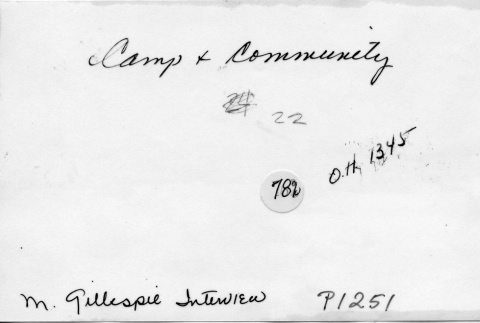 Camp + Community
24 22
O.H. 1345
782
M. Gillespie Interview P1251